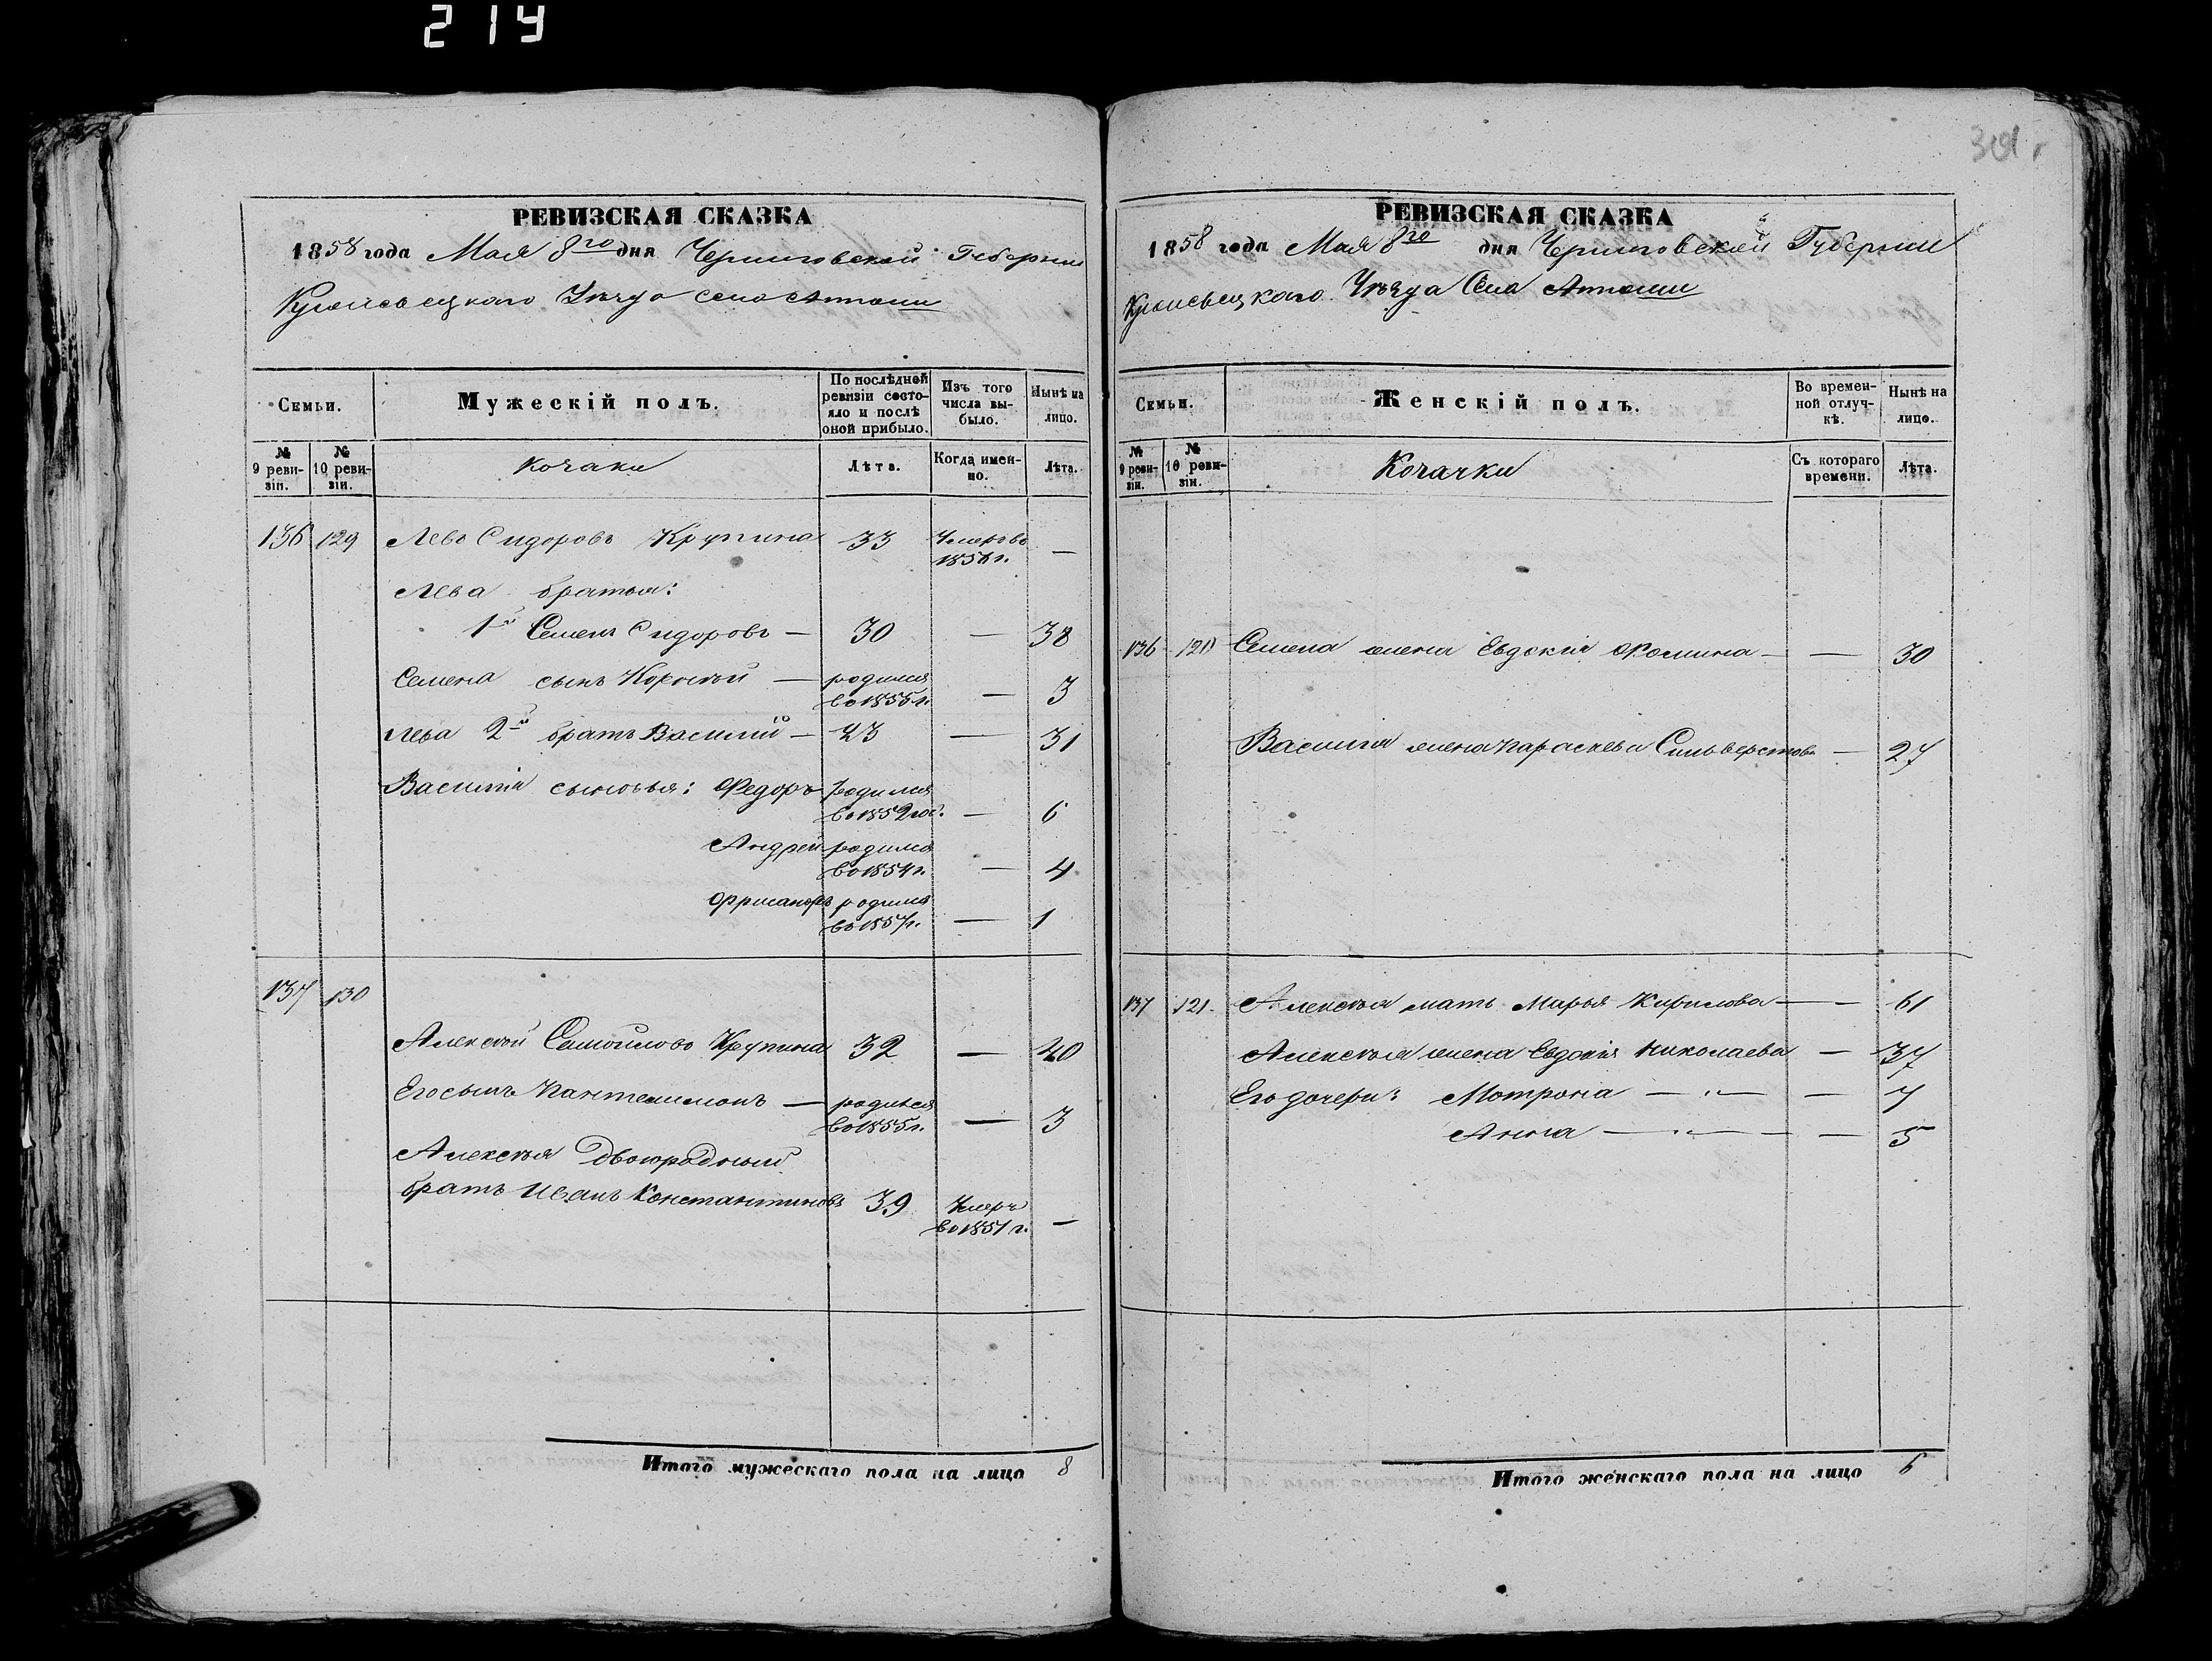 214
301
РЕВИЗСКАЯ СКАЗКА
1858 года Мая 8го дня Черниговской Губернии
Кролевецкаго Уезда села
Семьи.
Мужескій полъ.
По послѣдней ревизіи состояло и послѣ оной прибыло.
Изъ того числа выбыло.
Нынѣ на лицо.
№ 9 ревизіи.
№ 10 ревизіи.
Козаки
Лѣта.
Когда именно.
Лѣта.
136 129 Левъ Сидоровъ Крупина 33 Умеръ во —
Лева братья:
1й Семенъ Сидоровъ — 30 — 38
Семена сынъ — родился во 1855 г. — 3
Лева 2й братъ Василий — 23 — 31
Василия сыновья: Федоръ родился во 1852 год. — 6
Андрей родился во 1854 г. — 4
родился во 1857 г. — 1
137 130
Алексей Самойловъ Крупина 32 — 40
Его сынъ Пантелимонъ — родился во 1855 г. — 3
Алексея двоюродный
братъ Иванъ Константиновъ 39 Умеръ во 1851 г. —
Итого мужескаго пола на лицо 8
РЕВИЗСКАЯ СКАЗКА
1858 года Мая 8го дня Черниговской Губернии
Кролевецкаго Уезда Села
Семьи.
Женскій полъ.
Во временной отлучкѣ.
Нынѣ на лицо.
№ 9 ревизіи.
№ 10 ревизіи.
Козачки
Съ котораго времени.
Лѣта.
136 Семена жена Евдокия Фомина — — 30
Василия жена Параскева Сильверстова — 27
137 121. Алексея мать Марья Кирилова — — 61
Алексея жена Евдокия Николаева — 37
Его дочери: Мотрона — „ — — 7
Анна — „ — — 5
Итого женскаго пола на лицо 6